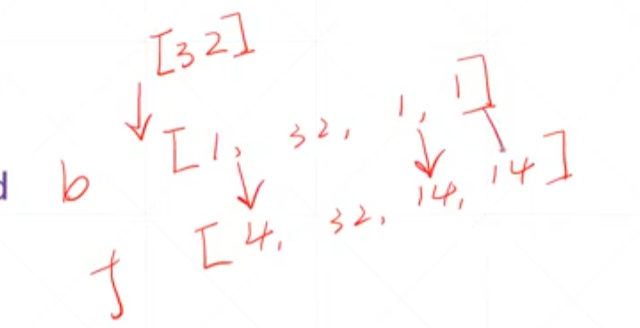 [32]
b [1, 32, 1, 1]
[4, 32, 14, 14]